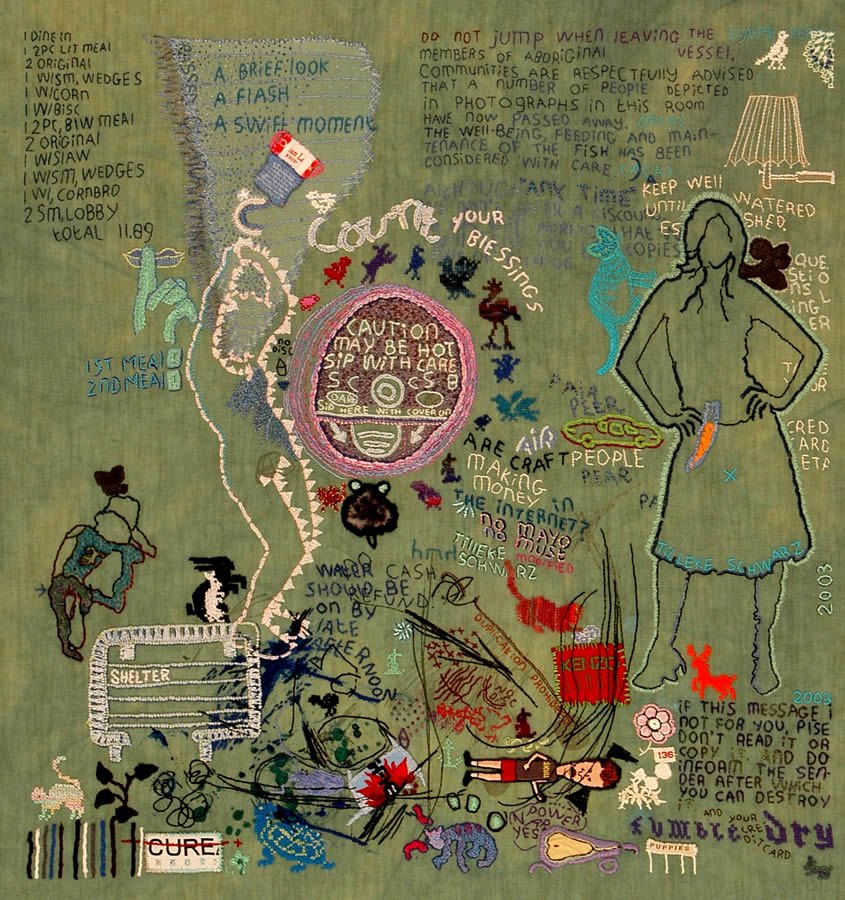 1 DINE IN
1 2PC LIT MEAL
2 ORIGINAL
1 W/SM, WEDGES
1 W/CORN
1 W/BISC
1 2PC, B/W MEAL
2 ORIGINAL
1 W/SLAW
1 W/SM, WEDGES
1 W/, CORNBRD
2 SM, LOBBY
total 11.89
A BRIEF LOOK
A FLASH
A SWIFT MOMENT
DO NOT jump WHEN lEAVING THE
MEMBERS OF ABORIGINAL VESSEL,
COMMUNITIES ARE RESPECTFULLY ADVISED
THAT A NUMBER OF PEOPLE DEPICTED
in PHOTOGRAPHS in this ROOM
HAVE NOW PASSED AWAY.
THE WELL-BEING, FEEDING AND MAIN-
TENANCE OF THE FISH HAS BEEN
CONSIDERED WITH CARE.
ALTHOUGH "ANY TIME"
KEEP WELL WATERED
UNTIL
ES SHED.
COUNT YOUR
BLESSINGS
QUE
STIO
NS
ING
ER
1ST MEAL
2ND MEAL
no
DISC
CAUTION
MAY BE HOT
SIP WITH CARE
SIP HERE WITH COVER ON
PAIR
PEER
AIR
PEOPLE
PEAR
PA
CRED
ARD
ETA
ARE CRAFT
MAKING
MONEY in
THE INTERNET?
no MAYO
no MUST
MODIFIED
hmd
TILLEKE
SCHWARZ
TILLEKE SCHWARZ
2003
WATER CASH
SHOULD BE REFUND.
on BY
lATE
AFTERNOON
DUPLICATION PROHIBITED
KENZO
SHELTER
2003
iF THIS MESSAGE i
NOT FOR YOU, PlSE
DON'T READ IT OR
COPY iT AND DO
INFORM THE SEN-
DER AFTER WHICH
YOU CAN DESTROY
iT AND YOUR
CRE
DIT
CARD
136
tumble dry
N POWER
YES
PUPPIES
CURE